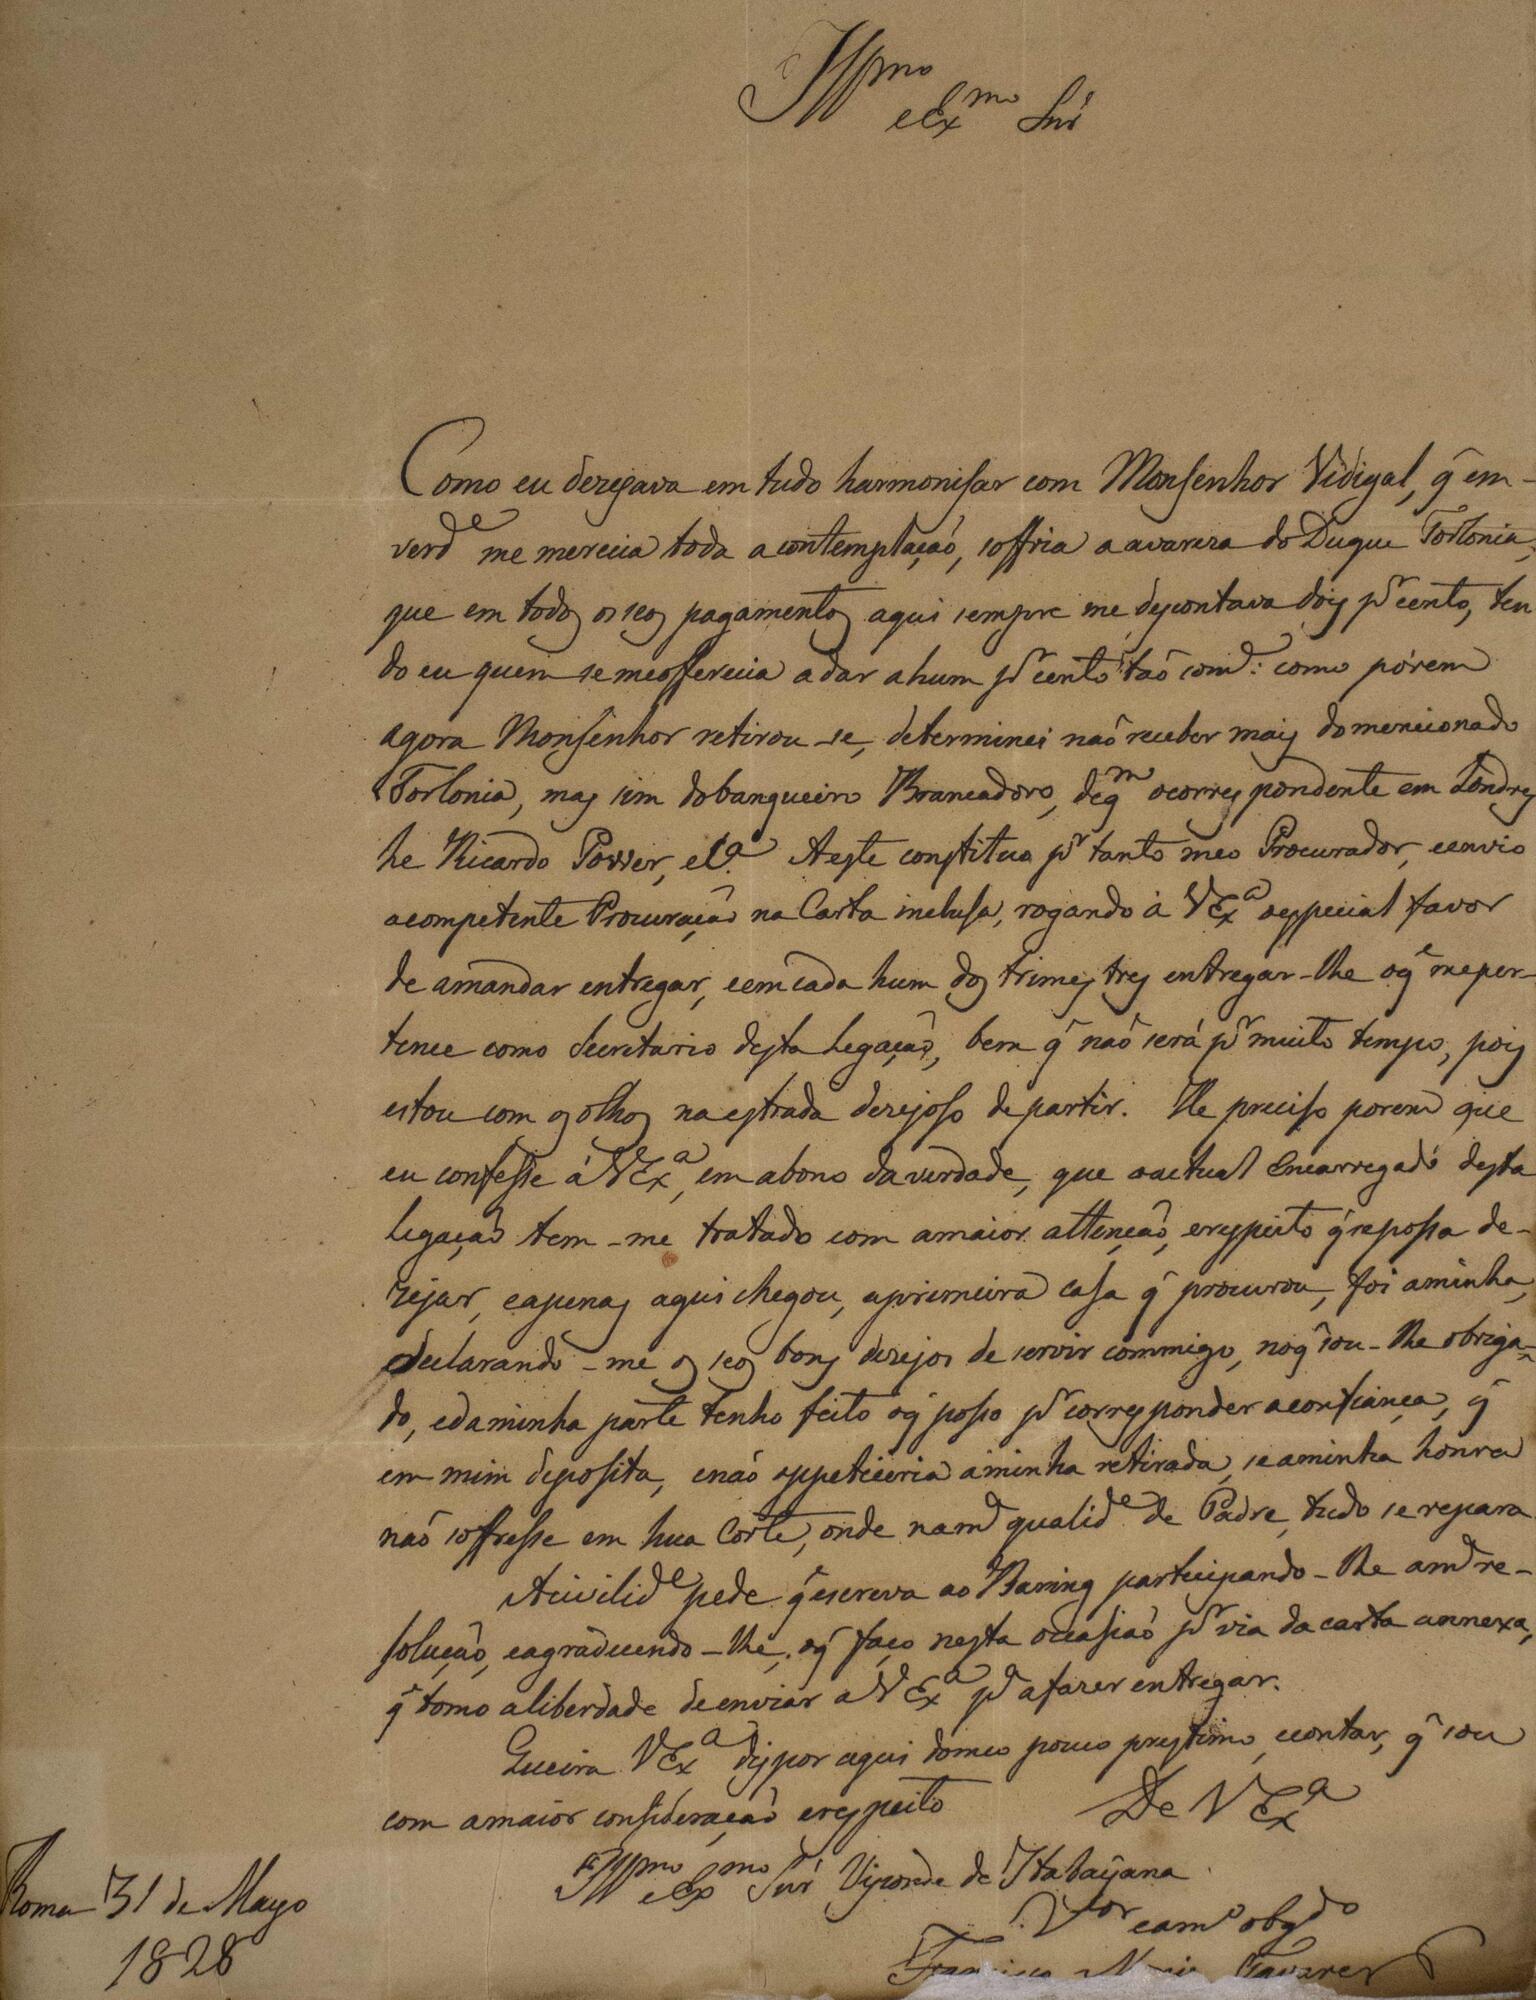 Illmo
e Exmo Snr
Como eu dezejava em tudo harmonisar com Monsenhor Vidigal, q̃ em-
verde me merecia toda a contemplação, soffria a avareza do Duque Torlonia,
que em todos os seos pagamentos aqui sempre me descontava dois pr cento, ten
do eu quem se me offerecia a dar a hum pr cento tão somte: como pórem
agora Monsenhor retirou-se, determinei não receber mais do mencionado
Torlonia, mas sim do banqueiro Brancadoro, de qm o correspondente em Londres
he Ricardo Power, e Ca. A este constituo pr tanto meo Procurador, e envio
a competente Procuração na Carta inclusa, rogando á V Exa o especial favor
de a mandar entregar, e em cada hum dos trimestres entregar-lhe o q̃ me per-
tence como Secretario desta Legação, bem q̃ não será pr muito tempo, pois
estou com os olhos na estrada dezejoso de partir. He preciso porem que
eu confesse á V Exa, em abono da verdade, que o actual Encarregado desta
Legação tem-me tratado com a maior attenção, e respeito q̃ se possa de-
zejar, e apenas aqui chegou, a primeira casa q̃ procurou, foi a minha,
declarando-me os seos bons dezejos de servir commigo, no q̃ sou-lhe obriga-
do, e da minha parte tenho feito o q̃ posso pr corresponder a confiança, q̃
em mim deposita, e não appeteceria a minha retirada, se a minha honra
não soffresse em hua Corte, onde na ma qualide de Padre, tudo se repara
A civilide pede q̃ escreva ao Baring participando-lhe a ma re-
solução, e agradecendo-lhe; o q̃ faço nesta occasião pr via da carta annexa,
q̃ tomo a liberdade de enviar a V Exa pa a fazer entregar.
Queira V Exa dispor aqui do meo pouco prestimo, e contar, q̃ sou
com a maior consideração e respeito De V Exa
Illmo e Exmo Snr Visconde de Itabayana
Vor e amo obgdo
Roma 31 de Mayo
1828
Francisco Tavares